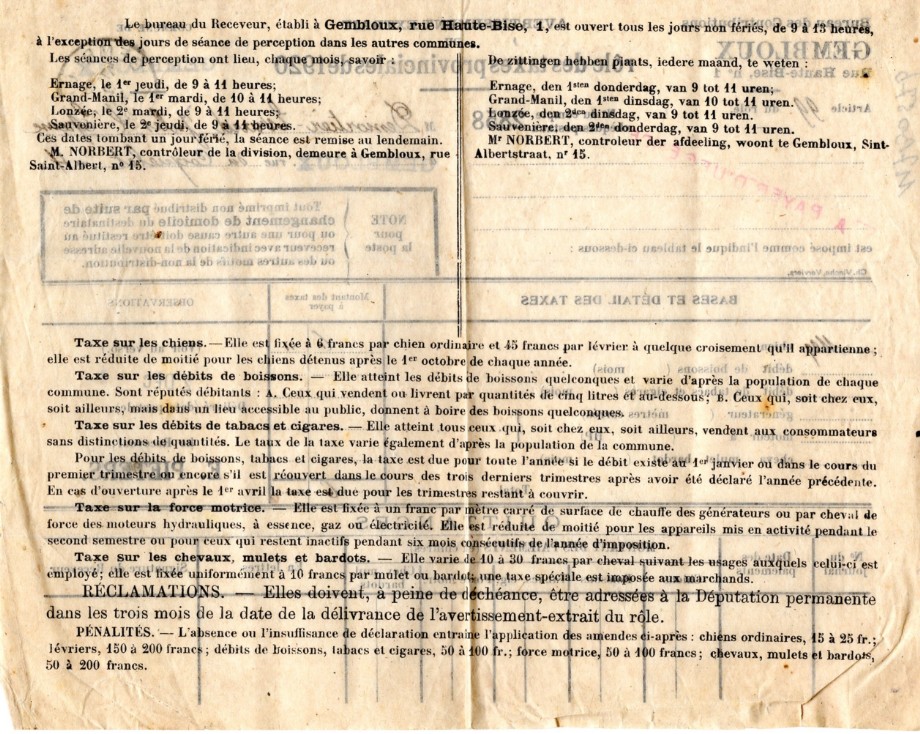 Le bureau du Receveur, établi à Gembloux, rue Haute-Bise, 1, est ouvert tous les jours non fériés, de 9 à 13 heures,
à l'exception des jours de séance de perception dans les autres communes.
Les séances de perception ont lieu, chaque mois, savoir :
Ernage, le 1er jeudi, de 9 à 11 heures;
Grand-Manil, le 1er mardi, de 10 à 11 heures;
Lonzée, le 2e mardi, de 9 à 11 heures;
Sauvenière, le 2e jeudi, de 9 à 11 heures.
Ces dates tombant un jour férié, la séance est remise au lendemain.
M. NORBERT, contrôleur de la division, demeure à Gembloux, rue
Saint-Albert, no 15.
De zittingen hebben plaats, iedere maand, te weten :
Ernage, den 1sten donderdag, van 9 tot 11 uren;
Grand-Manil, den 1sten dinsdag, van 10 tot 11 uren.
Lonzée, den 2den dinsdag, van 9 tot 11 uren.
Sauvenière, den 2den donderdag, van 9 tot 11 uren
Mr NORBERT, controleur der afdeeling, woont te Gembloux, Sint-
Albertstraat, nr 15.
NOTE
pour
la poste
Tout imprimé non distribué par suite de
changement de domicile du destinataire
ou pour une autre cause doit être restitué au
receveur avec indication de la nouvelle adresse
ou des autres motifs de la non-distribution.
est imposé comme l'indique le tableau ci-dessous :
BASES ET DÉTAIL DES TAXES
Montant des taxes
à payer
OBSERVATIONS
Taxe sur les chiens. — Elle est fixée à 6 francs par chien ordinaire et 45 francs par lévrier à quelque croisement qu'il appartienne ;
elle est réduite de moitié pour les chiens détenus après le 1er octobre de chaque année.
Taxe sur les débits de boissons. — Elle atteint les débits de boissons quelconques et varie d'après la population de chaque
commune. Sont réputés débitants : A. Ceux qui vendent ou livrent par quantités de cinq litres et au-dessous; B. Ceux qui, soit chez eux,
soit ailleurs, mais dans un lieu accessible au public, donnent à boire des boissons quelconques.
Taxe sur les débits de tabacs et cigares. — Elle atteint tous ceux qui, soit chez eux, soit ailleurs, vendent aux consommateurs
sans distinctions de quantités. Le taux de la taxe varie également d'après la population de la commune.
Pour les débits de boissons, tabacs et cigares, la taxe est due pour toute l'année si le débit existe au 1er janvier ou dans le cours du
premier trimestre ou encore s'il est réouvert dans le cours des trois derniers trimestres après avoir été déclaré l'année précédente.
En cas d'ouverture après le 1er avril la taxe est due pour les trimestres restant à couvrir.
Taxe sur la force motrice. — Elle est fixée à un franc par mètre carré de surface de chauffe des générateurs ou par cheval de
force des moteurs hydrauliques, à essence, gaz ou électricité. Elle est réduite de moitié pour les appareils mis en activité pendant le
second semestre ou pour ceux qui restent inactifs pendant six mois consécutifs de l'année d'imposition.
Taxe sur les chevaux, mulets et bardots. — Elle varie de 10 à 30 francs par cheval suivant les usages auxquels celui-ci est
employé; elle est fixée uniformément à 10 francs par mulet ou bardot; une taxe spéciale est imposée aux marchands.
RÉCLAMATIONS. — Elles doivent, à peine de déchéance, être adressées à la Députation permanente
dans les trois mois de la date de la délivrance de l'avertissement-extrait du rôle.
PÉNALITÉS. — L'absence ou l'insuffisance de déclaration entraîne l'application des amendes ci-après : chiens ordinaires, 15 à 25 fr.;
lévriers, 150 à 200 francs; débits de boissons, tabacs et cigares, 50 à 100 fr.; force motrice, 50 à 100 francs; chevaux, mulets et bardots,
50 à 200 francs.